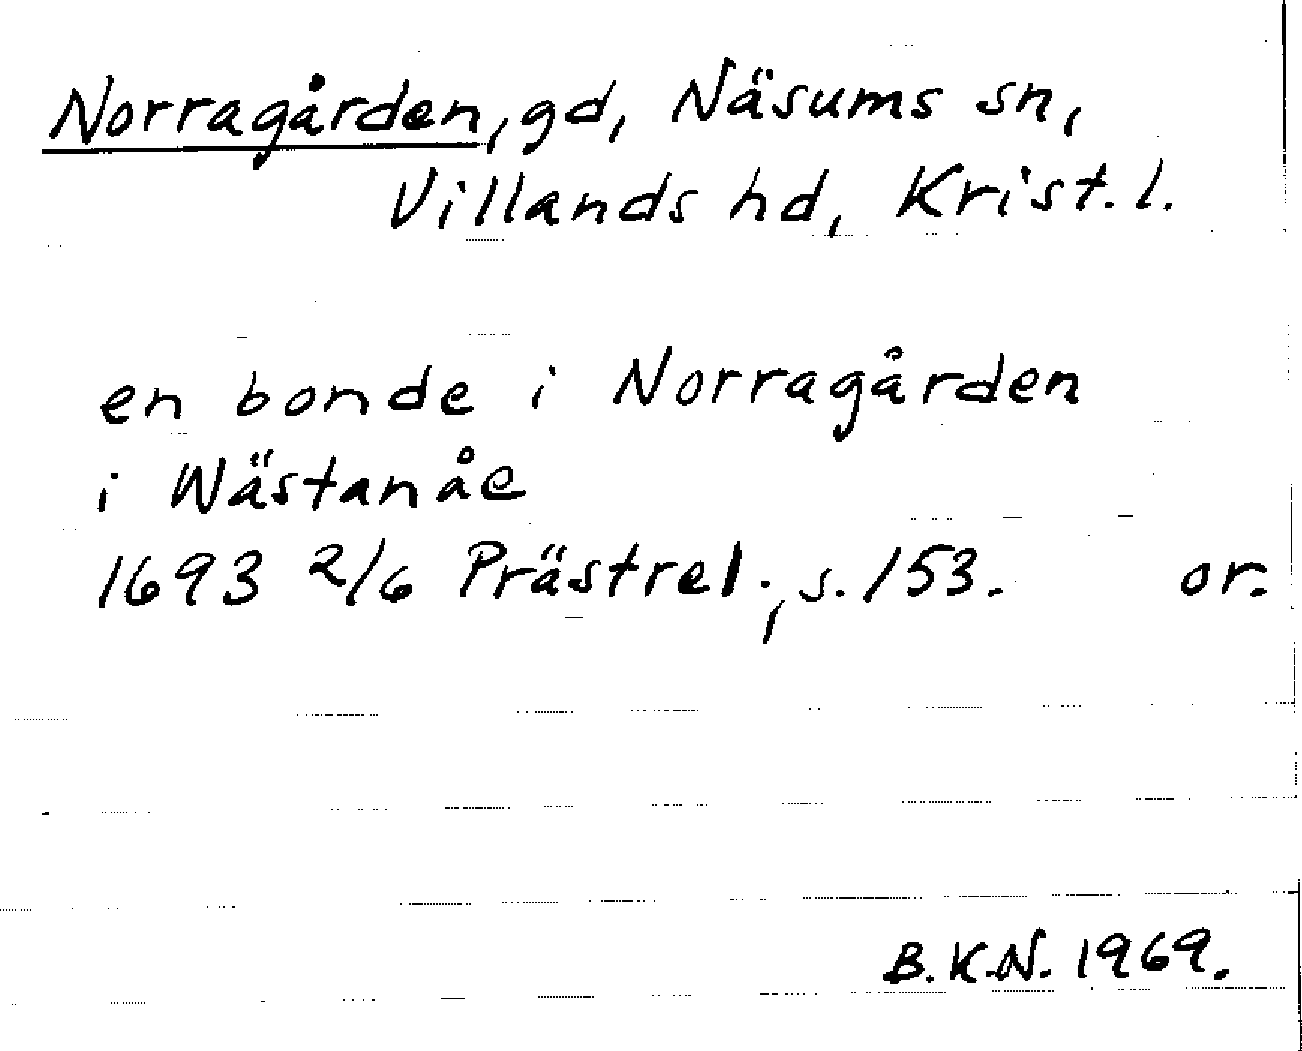 Norragården, gd, Näsums sn,
Villands hd, Krist. l.
en bonde i Norragården
i Wästanåe
1693 2/6 Prästrel., s. 153. or.
B.K.N. 1969.